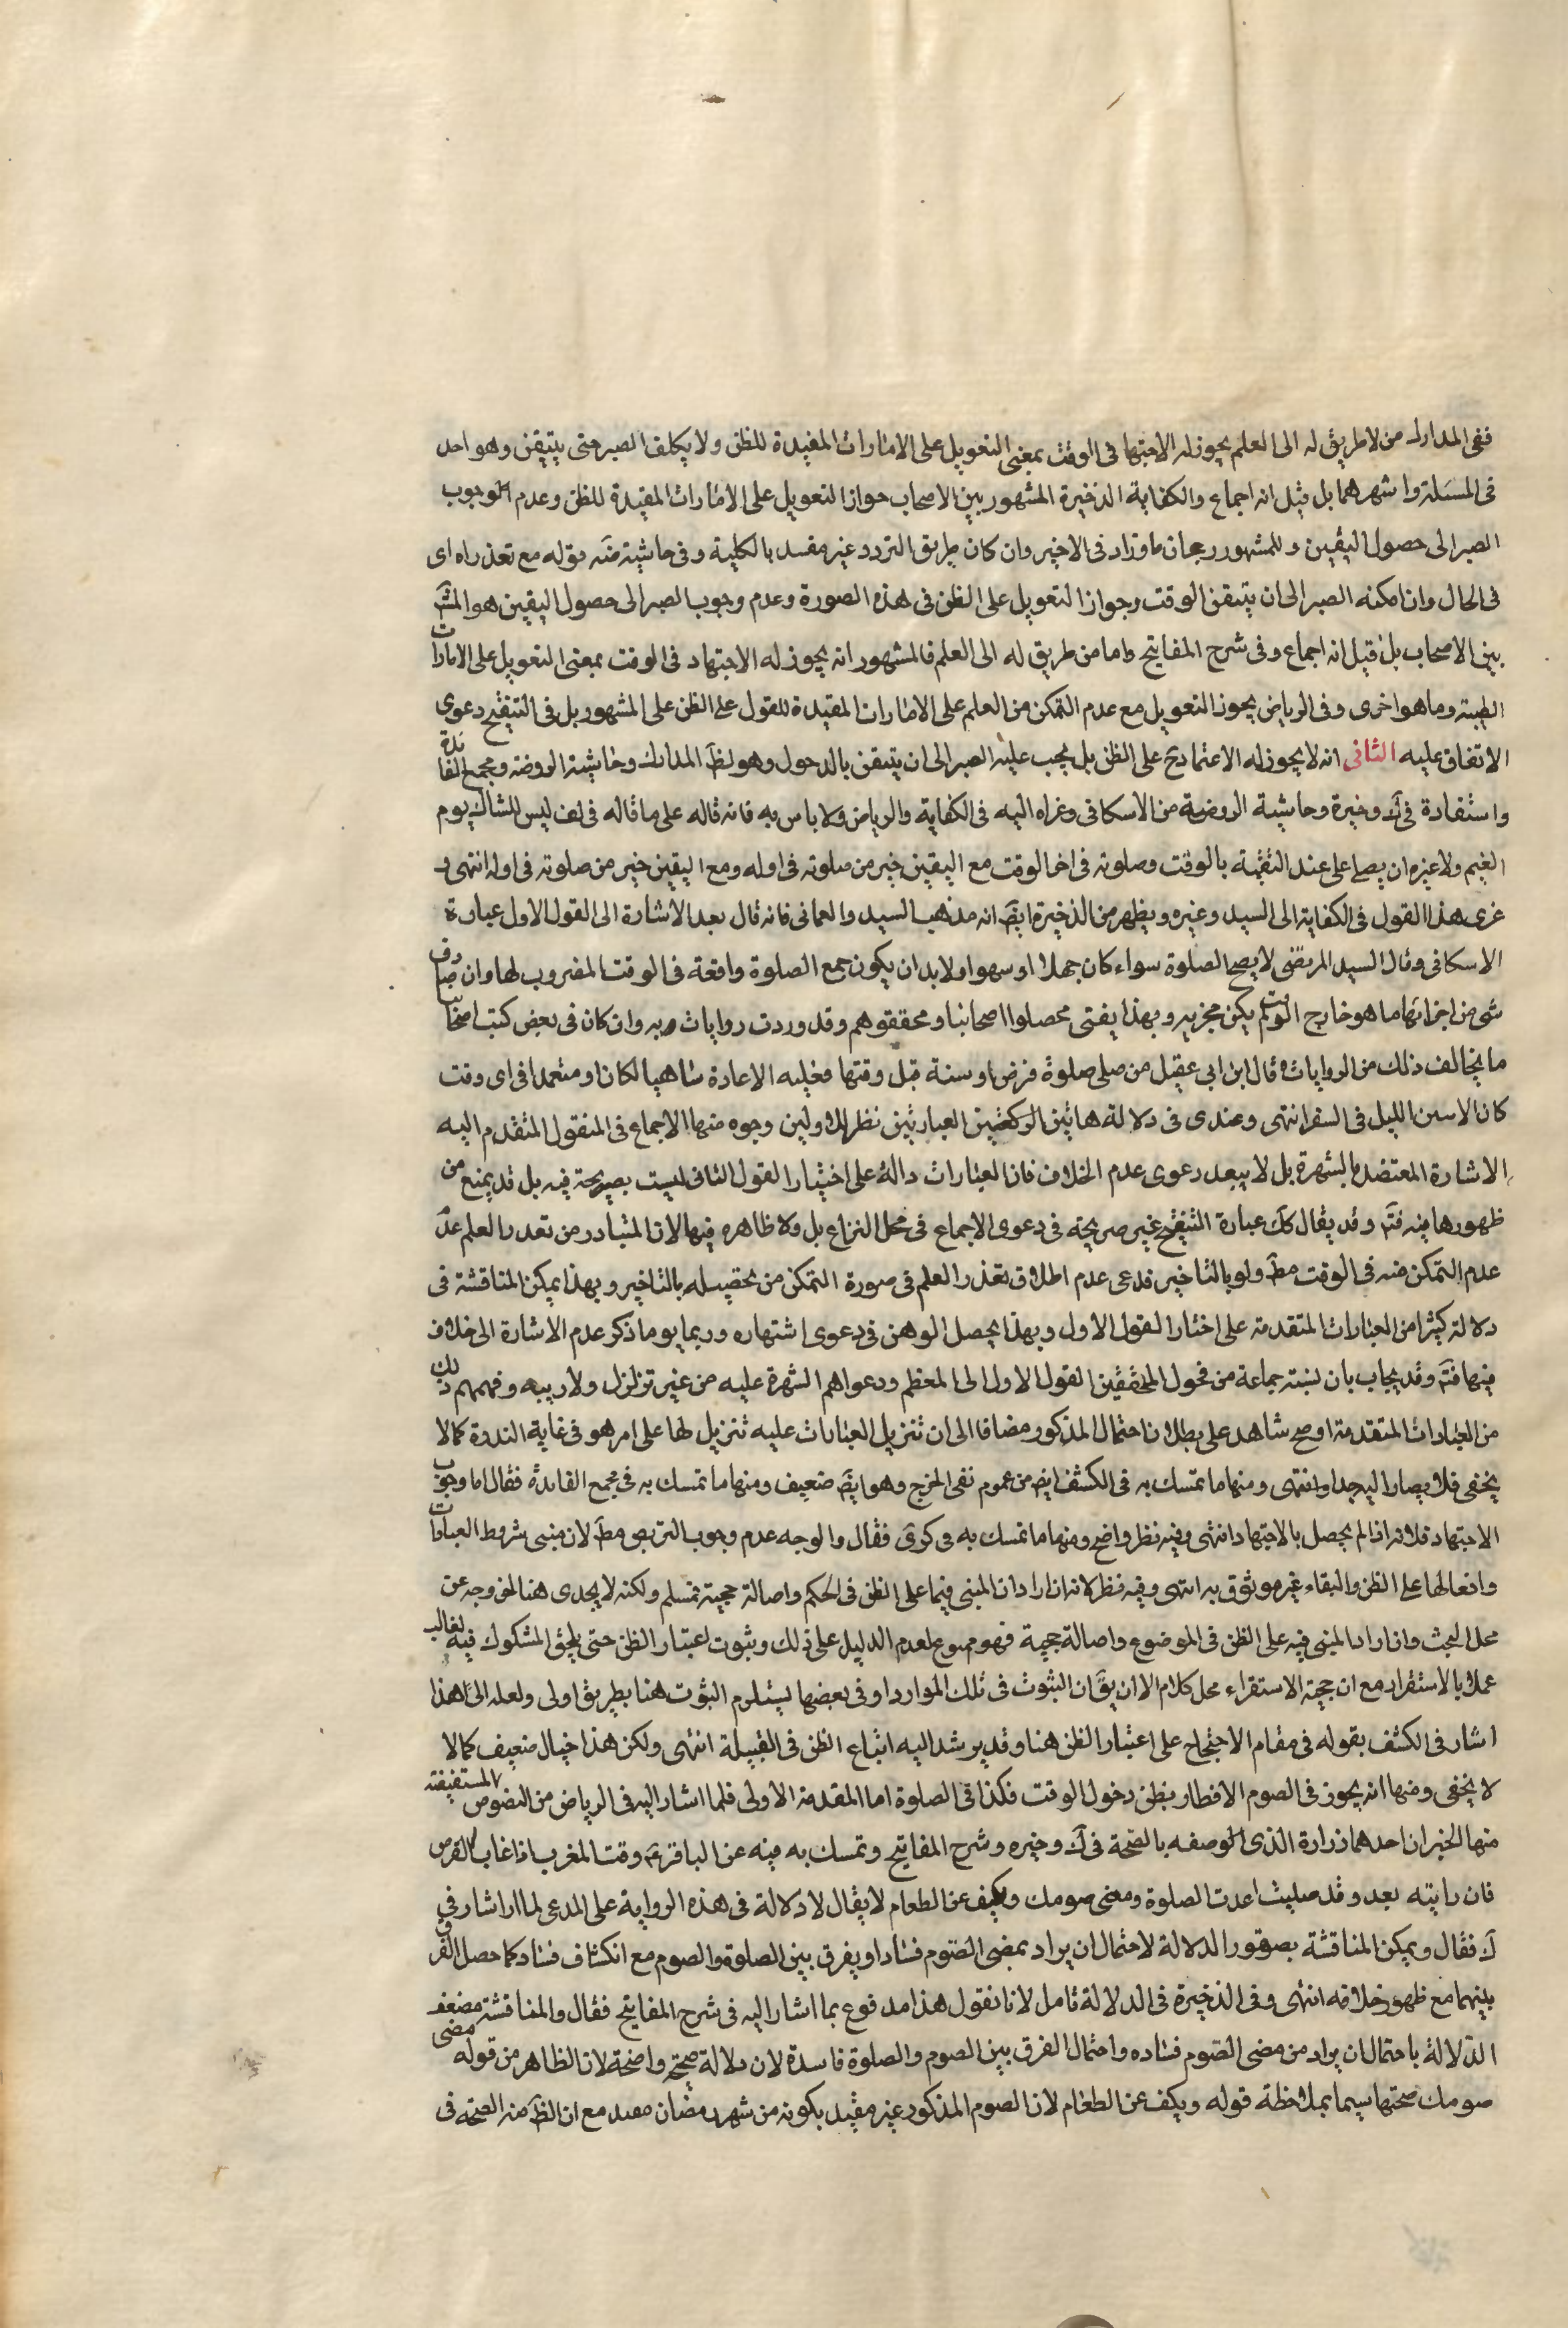 ففى المدارك من لا طريق له الى العلم يجوز له الاجتهاد فى الوقت بمعنى التعويل على الامارات المفيدة للظن ولا يكلف الصبر حتى يتيقن وهو احد
فى المسئلة واشهرهما بل قيل انه اجماع والكفاية الذخيرة المشهور بين الاصحاب جواز التعويل على الامارات المفيدة للظن وعدم الوجوب
الصبر الى حصول اليقين وللمشهور رجحان ما وزاد فى الاخير وان كان طريق التردد غير مفسد بالكلية وفى حاشية ضه قوله مع تعذراه اى
فى الحال وان امكنه الصبر الى ان يتيقن الوقت وجواز التعويل على الظن فى هذه الصورة وعدم وجوب الصبر الى حصول اليقين هو المشهـ
بين الاصحاب بل قيل انه اجماع وفى شرح المفاتيح واما من طريق له الى العلم فالمشهور انه يجوز له الاجتهاد فى الوقت بمعنى التعويل على الامارات
الظنية وما هو اخرى وفى الرياض يجوز التعويل مع عدم التمكن من العلم على الامارات المفيدة للقول على الظن على المشهور بل فى التنقيح دعوى
الاتفاق عليه الثانى انه لا يجوز له الاعتماد ح على الظن بل يجب عليه الصبر الى ان يتيقن بالدخول وهو لظ المدارك وحاشية الروضة ومجمع الفائدة
واستفادة فى ك وخيرة وحاشية الروضة من الاسكافى وعزاه اليه فى الكفاية والرياض ولا باس به فانه قاله على ما قاله فى لف ليس للشاك يوم
الغيم ولا غيره ان يصلى على عند التقية بالوقت وصلوته فى اخر الوقت مع اليقين خير من صلوته فى اوله ومع اليقين خير من صلوته فى اوله انتهى و
عزى هذا القول فى الكفاية الى السيد وغيره ويظهر من الذخيرة ايضا انه مذهب السيد والعمانى فانه قال بعد الاشارة الى القول الاول عبارة
الاسكافى وقال السيد المرتضى لا يصح الصلوة سواء كان جهلا او سهوا ولا بد ان يكون جمع الصلوة واقعة فى الوقت المضروب لها وان صادف
شى من اجزائها ما هو خارج الوقت لم يكن مجزيه وبهذا يفتى محصلوا اصحابنا ومحققوهم وقد وردت روايات به وان كان فى بعض كتب اصحابنا
ما يخالف ذلك من الروايات وقال ابن ابى عقيل من صلى صلوة فرض او سنة قبل وقتها فعليه الاعادة ساهيا لكان او متعمدا فى اى وقت
كان الا سنن الليل فى السفر انتهى وعندى فى دلالة هاتين الركعتين العبارتين نظر للاولين وجوه منها الاجماع فى المنقول المتقدم اليه
الاشارة المعتضد بالشهرة بل لا يبعد دعوى عدم الخلاف فان العبارات دالة على اختيار القول الثانى ليست بصريحة فيه بل قد يمنع من
ظهورها فيه فتـ وقد يقال ك عبارة التنقيح غير صريحة فى دعوى الاجماع فى محل النزاع بل ولا ظاهره فيها لان المتبادر من تعذر العلم عد
عدم التمكن منه فى الوقت مط ولو بالتاخير فدعى عدم اطلاق تعذر العلم فى صورة التمكن من تحصيله بالتاخير وبهذا يمكن المناقشة فى
دلالة كثيرا من العبارات المتقدمة على اختار القول الاول وبهذا يحصل الوهن فى دعوى اشتهاره وربما يوما ذكر عدم الاشارة الى خلاف
فيها فتـ وقد يجاب بان نسبة جماعة من فحول المحققين القول الاول الى المعظم ودعواهم الشهرة عليه من غير تزلزل ولا ريبه وفهمهم ذلك
من العبارات المتقدمة اوضح شاهد على بطلان احتمال المذكور مضافا الى ان تنزيل العبارات عليه تنزيل لها على امر هو فى غاية الندرة كما لا
يخفى فلا يصار اليه جدا وانتهى ومنها ما تمسك به فى الكشف ايض من عموم نفى الحرج وهو ايض ضعيف ومنها ما تمسك به فى مجمع الفائدة فقال اما وجوب
الاجتهاد فلانه اذا لم يحصل بالاجتهاد انتهى وفيه نظر واضح ومنها ما تمسك به فى كرى فقال والوجه عدم وجوب التربص مط لان مبنى شروط العبادات
وافعالها على الظن والبقاء غير موثوق به انتهى وفيه نظر لانه ان اراد ان المبنى فيما على الظن فى الحكم واصالة حجية فمسلم ولكنه لا يجدى هنا لخروجه عن
محل البحث وان اراد المبنى فيه على الظن فى الموضوع واصالة حجية فهو ممنوع لعدم الدليل على ذلك وثبوت اعتبار الظن حتى يلحق المشكوك فيه لغالب
عملا بالاستقراء مع ان حجية الاستقراء محل كلام الا ان يق ان الثبوت فى تلك الموارد او فى بعضها يستلزم الثبوت هنا بطريق اولى ولعله الى هذا
اشار فى الكشف بقوله فى مقام الاحتجاج على اعتبار الظن هنا وقد يرشد اليه اتباع الظن فى القبلة انتهى ولكن هذا خيال ضعيف كما لا
لا يخفى ومنها انه يجوز فى الصوم الافطار بظن دخول الوقت فكذا فى الصلوة اما المقدمة الاولى فلما اشار اليه فى الرياض من النصوص المستفيضة
منها الخبران احدهما زرارة الذى الوصفه بالصحة فى ك وخيره وشرح المفاتيح وتمسك به فيه عن الباقر ع وقت المغرب اذا غاب القرص
فان رايته بعد وقد صليت اعدت الصلوة ومضى صومك وتكف عن الطعام لا يقال لا دلالة فى هذه الرواية على المدعى لما اشار فى
ك فقال ويمكن المناقشة بصوقور الدلالة لاحتمال ان يراد بمضى الصوم فسادا ويفرق بين الصلوة والصوم مع انكشاف فساد كما حصل الفرق
بينهما مع ظهور خلافه انتهى وفى الذخيرة فى الدلالة تامل لانا نقول هذا مدفوع بما اشار اليه فى شرح المفاتيح فقال والمناقشة مضعف
الدلالة باحتمال ان يراد من مضى الصوم فساده واحتمال الفرق بين الصوم والصلوة فاسدة لان دلالة صحتها واضحة لان الظاهر من قوله مضى
صومك صحتها سيما بملاحظة قوله ويكف عن الطعام لان الصوم المذكور غير مقيد بكونه من شهر رمضان مقيد مع ان الظ منه الصحة فى